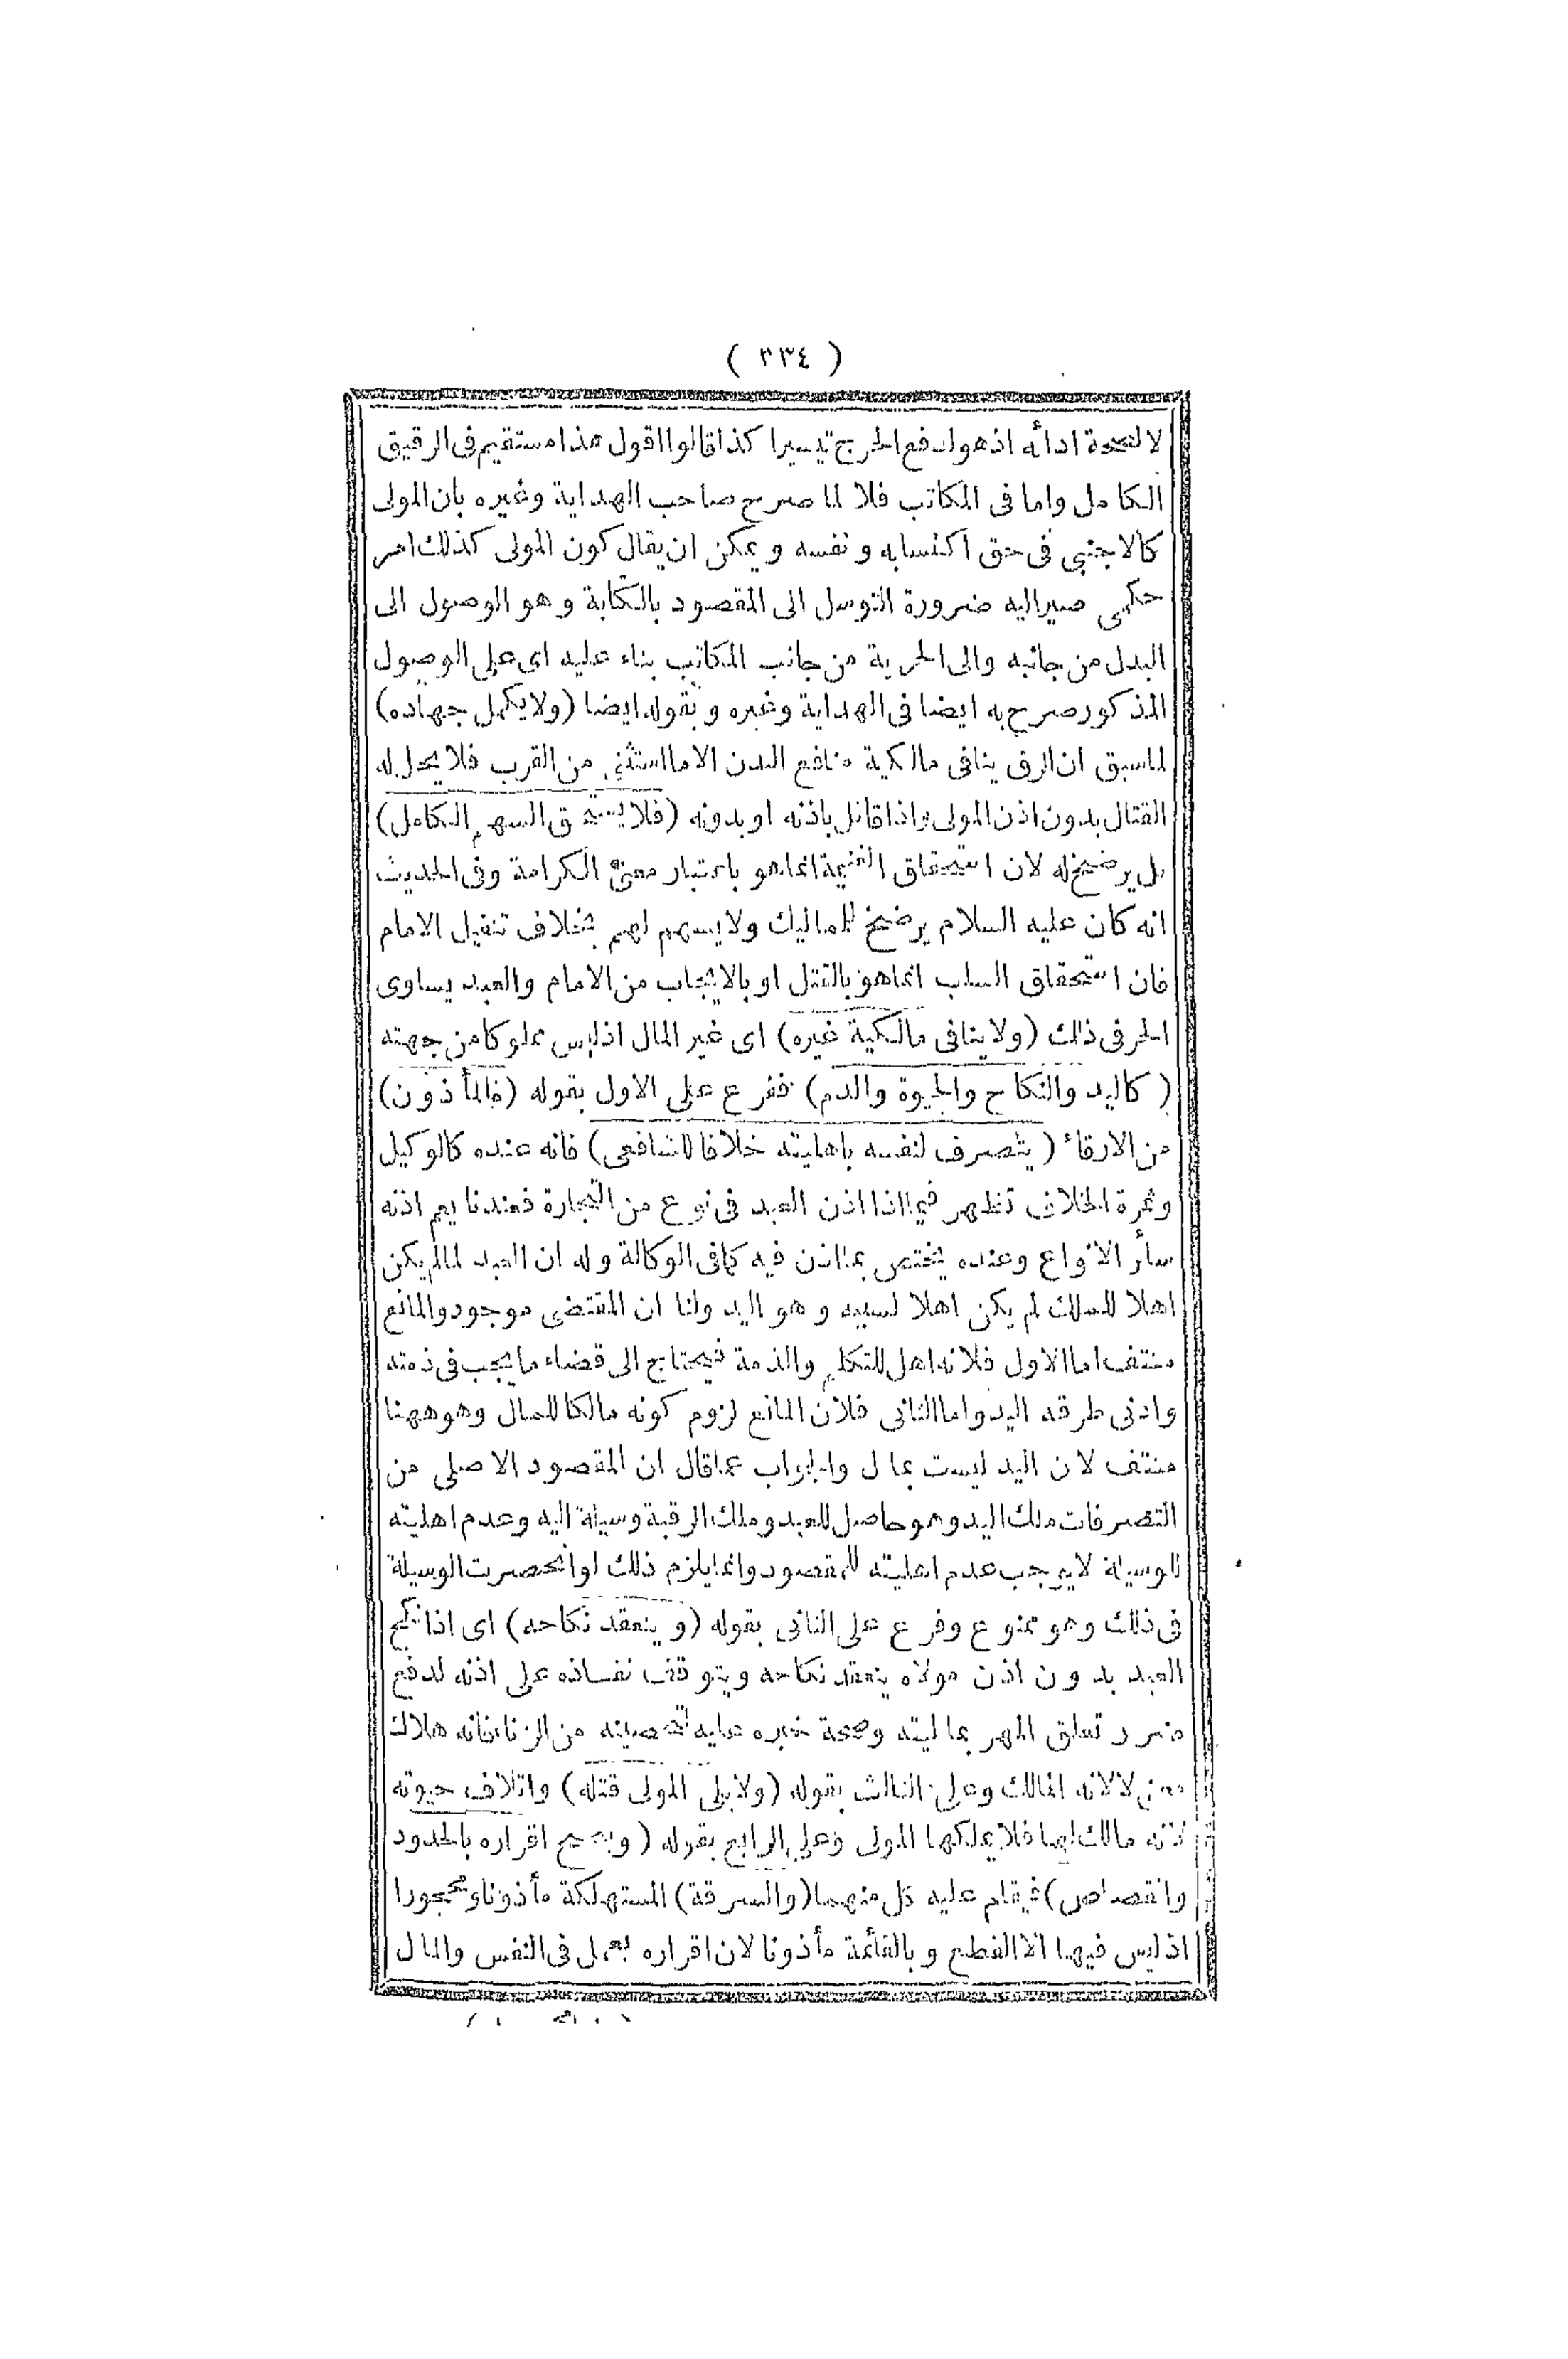 ( ٣٣٤ )
لا لصحة ادائه اذهو لدفع الحرج تيسيرا كذا قالوا اقول هذا مستقيم فى الرقيق
الكامل واما فى المكاتب فلا لما صرح صاحب الهداية وغيره بان المولى
كالاجنبى فى حق اكتسابه ونفسه ويمكن ان يقال كون المولى كذلك امر
حكمى صير اليه ضرورة التوسل الى المقصود بالكتابة وهو الوصول الى
البدل من جانبه والى الحرية من جانب المكاتب بناء عليه اى على الوصول
المذكور صرح به ايضا فى الهداية وغيره وبقوله ايضا (ولا يكمل جهاده)
لما سبق ان الرق ينافى مالكية منافع البدن الا ما استثنى من القرب فلا يحل له
القتال بدون اذن المولى واذا قاتل باذنه او بدونه (فلا يستحق السهم الكامل)
بل يرضخ له لان استحقاق الغنيمة انما هو باعتبار معنى الكرامة وفى الحديث
انه كان عليه السلام يرضخ للماليك ولا يسهم لهم بخلاف تنفيل الامام
فان استحقاق السلب انما هو بالقتل او بالايجاب من الامام والعبد يساوى
الحر فى ذلك (ولا ينافى مالكية غيره) اى غير المال اذ ليس مملوكا من جهته
(كاليد والنكاح والحيوة والدم) ففرع على الاول بقوله (فالمأذون)
من الارقاء (يتصرف لنفسه باهليته خلافا للشافعى) فانه عنده كالوكيل
وثمرة الخلاف تظهر فيما اذا اذن العبد فى نوع من التجارة فعندنا يعم اذنه
سائر الانواع وعنده يختص بما اذن فيه كما فى الوكالة وله ان العبد لما لم يكن
اهلا للملك لم يكن اهلا لسببه وهو اليد ولنا ان المقتضى موجود والمانع
منتف اما الاول فلانه اهل للتكلم والذمة فيحتاج الى قضاء ما يجب فى ذمته
وادنى طرقه اليد واما الثانى فلان المانع لزوم كونه مالكا للمال وهو ههنا
منتف لان اليد ليست بمال والجواب عما قال ان المقصود الاصلى من
التصرفات ملك اليد وهو حاصل للعبد وملك الرقبة وسيلة اليه وعدم اهليته
للوسيلة لا يوجب عدم اهليته للمقصود وانما يلزم ذلك لو انحصرت الوسيلة
فى ذلك وهو ممنوع وفرع على الثانى بقوله (وينعقد نكاحه) اى اذا نكح
العبد بدون اذن مولاه ينعقد نكاحه ويتوقف نفاذه على اذنه لدفع
ضرر تعلق المهر بماليته وصحة جبره عليه لتحصينه من الزنا فانه هلاك
معنى لا لانه المالك وعلى الثالث بقوله (ولا يلى المولى قتله) واتلاف حيوته
لانه مالك لها فلا يملكها المولى وعلى الرابع بقوله (ويصح اقراره بالحدود
والقصاص) فيقام عليه كل منهما (والسرقة) المستهلكة مأذونا ومحجورا
اذ ليس فيها الا القطع وبالقائمة مأذونا لان اقراره يعمل فى النفس والمال